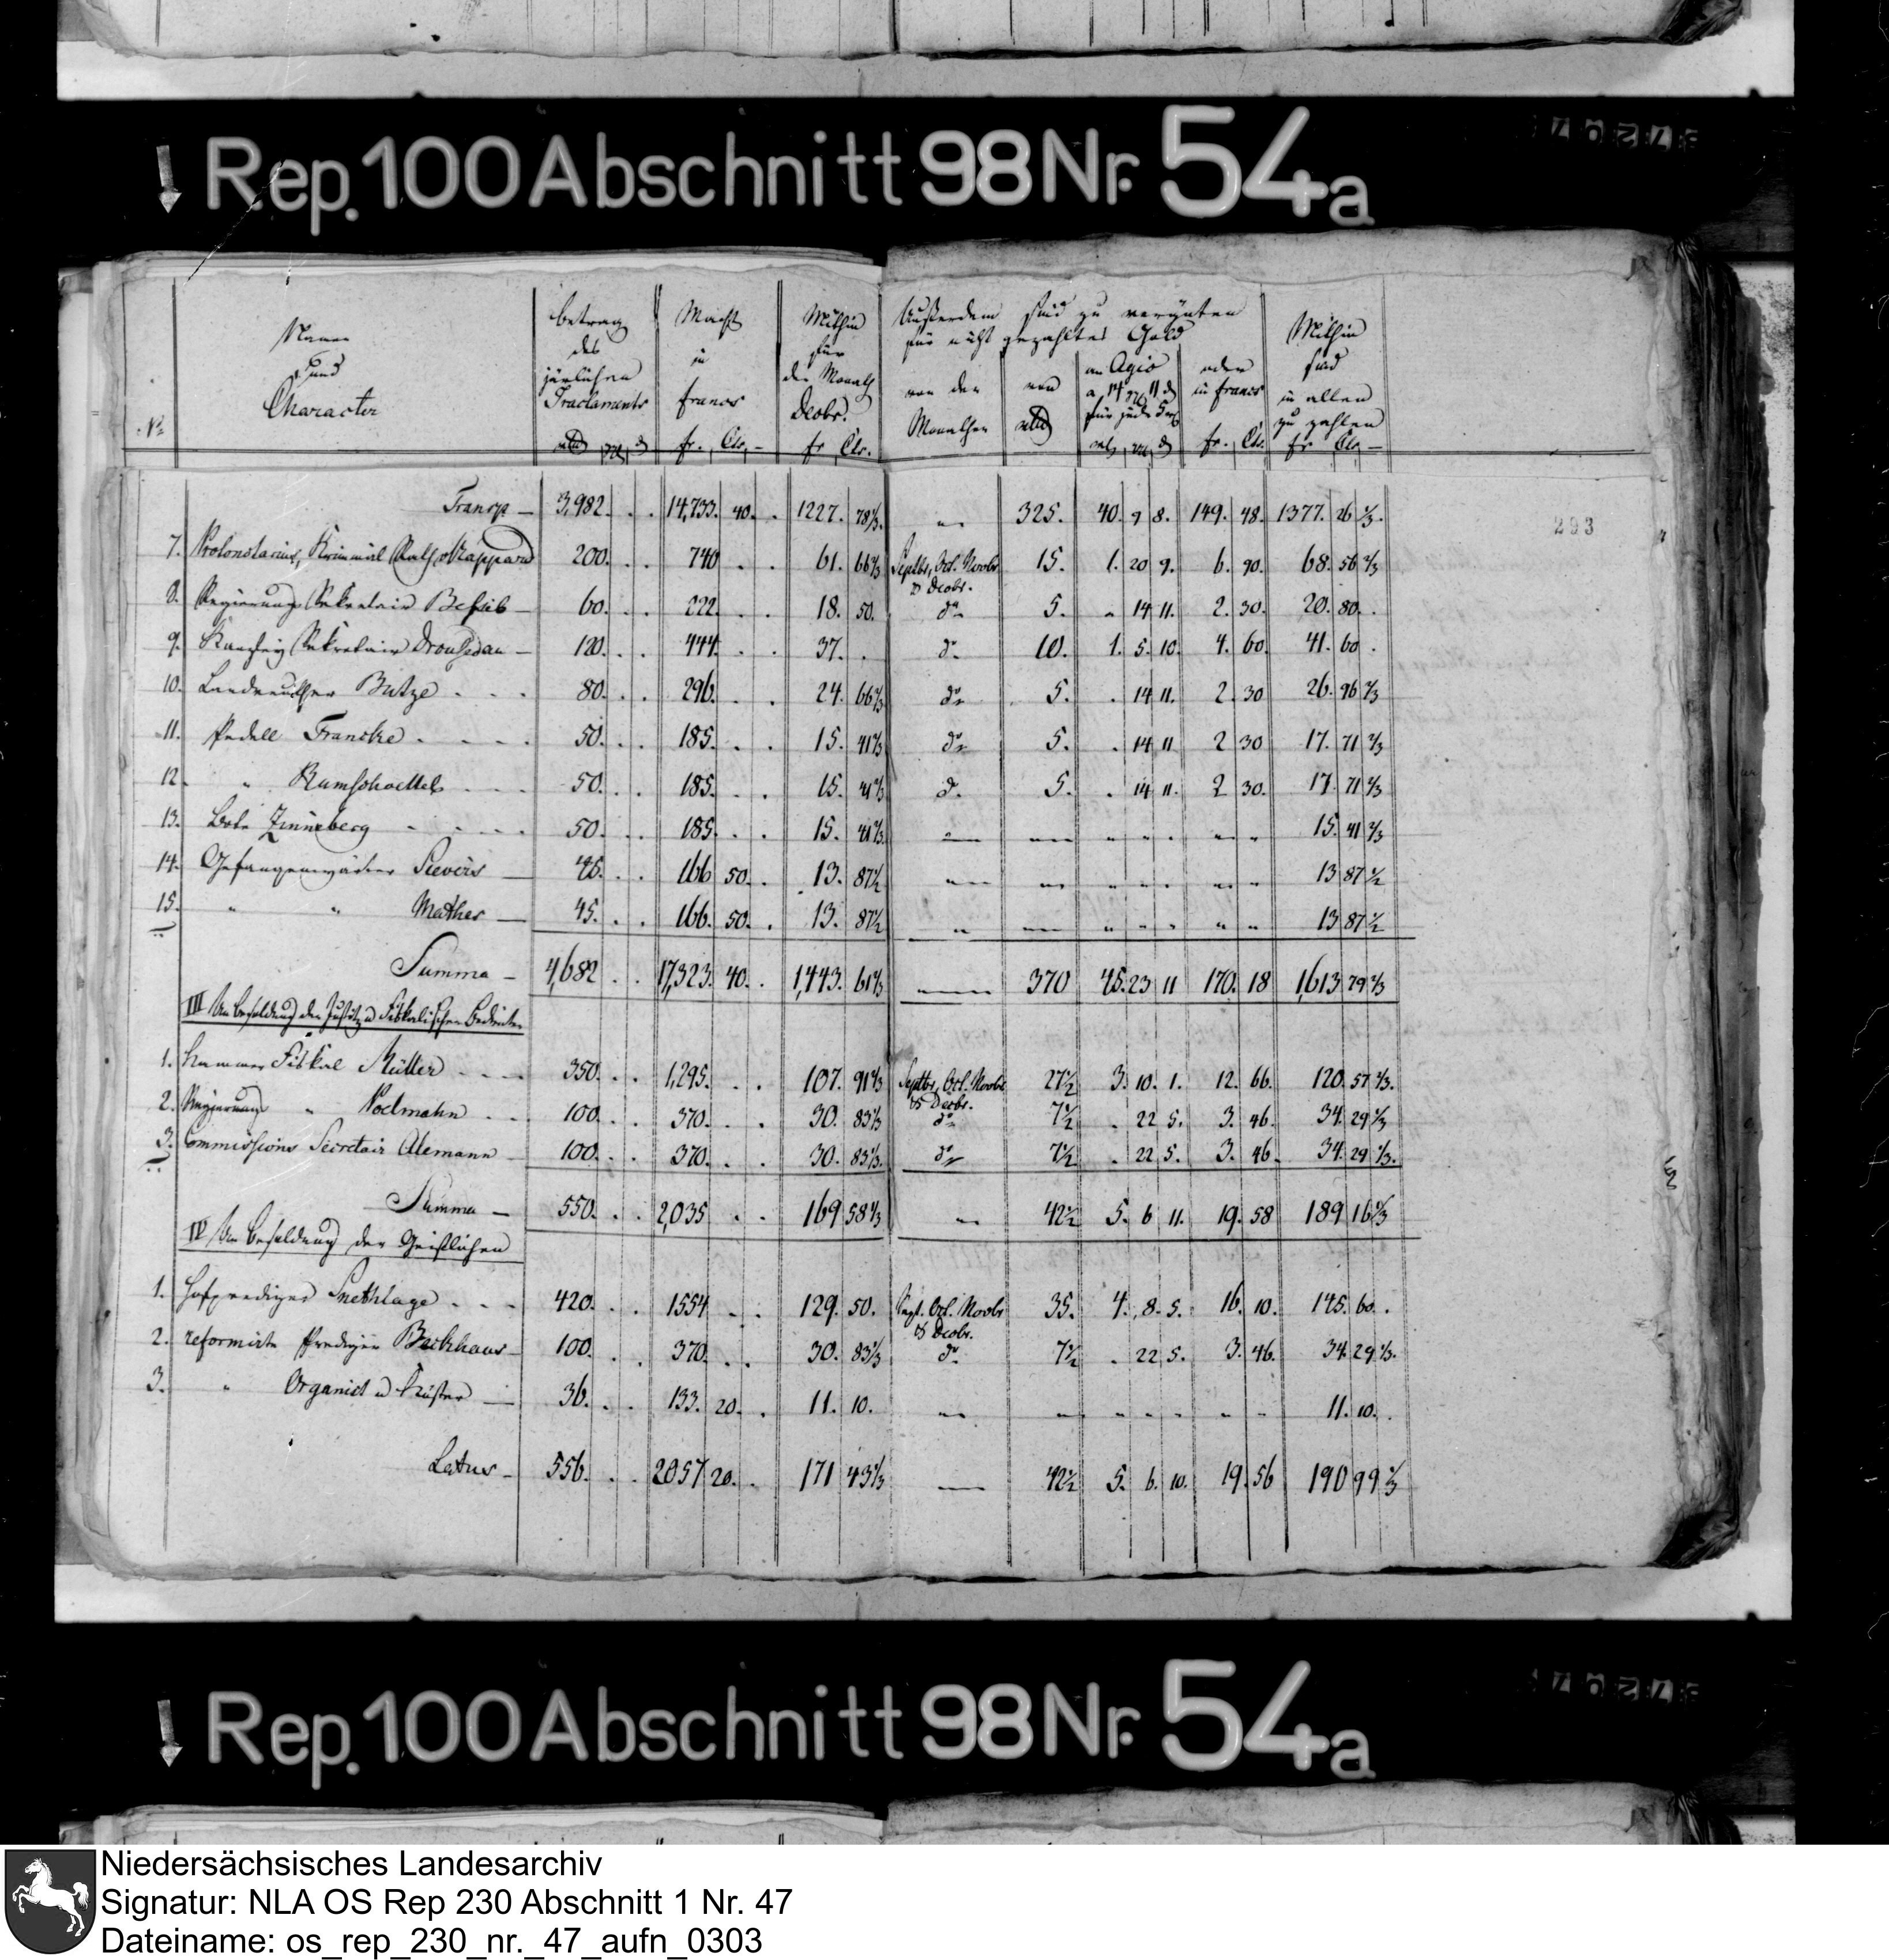 Rep. 100 Abschnitt 98 Nr. 54a
No
Namen und Character
betrag des järlichen Tractaments
Macht in francs
fr. Cts.
Mithin für den Monath Decbr.
fr Cts.
Außerdem sind zu vergüten für nicht gezahltes Gold
von den Monathen
von
an Agio a 14 11 für jede 5
oder in francs
fr. Cts.
Mithin sind in allen zu zahlen
fr Cts
293
Transp — 3,982. 14,733. 40. 1227. 78⅓. 325. 40. 9 8. 149. 48. 1377. 26⅓.
7. Protonotarius, Kriminal Rath v Rappard 200. 740 61. 66⅔ Septbr, Oct. Novbr & Decbr. 15. 1. 20 9. 6. 90. 68. 56⅔
8. Regierungs Sekretair 60. 222. 18. 50. do 5. " 14 11. 2. 30. 20. 80.
9. Kanzley Sekretair 120. 444. 37. do 10. 1. 5. 10. 4. 60. 41. 60.
10. Landreuther Butze 80. 296. 24. 66⅔ do 5. 14 11. 2. 30 26. 96⅔
11. Pedell Francke 50. 185. 15. 41⅔ do 5. 14 11 2 30 17. 71⅔
12. " Rumschoettel 50. 185. 15. 41⅔ do 5. 14 11. 2 30. 17. 71⅔
13. Bote Zinneberg 50. 185. 15. 41⅔ 15. 41⅔
14. Gefangenwärter Sievers 45. 166 50. 13. 87½ 13 87½
15. " " Mather 45. 166. 50. 13. 87½ 13 87½
Summa — 4,682 17,323. 40. 1,443. 61⅔ 370 45. 23 11 170. 18 1,613 79⅔
III An Besoldung der Justitz u Fiskalischen Bedienten
1. Kammer Fiskal Müller 350. 1,295. 107. 91⅔ Septbr, Oct. Novbr & Decbr. 27½ 3. 10. 1. 12. 66. 120. 57⅔.
2. Regierungs " Poelmahn 100. 370. 30. 83⅓ do 7½ 22 5. 3. 46. 34. 29⅓
3. Commissions Secretair Alemann 100. 370. 30. 83⅓. do 7½ 22 5. 3. 46. 34. 29⅓.
Summa — 550. 2,035 169 58⅓ 42½ 5. 6 11. 19. 58 189 16⅓
IV An Besoldung der Geistlichen
1. Hofprediger Snethlage 420. 1554 129. 50. Sept. Oct. Novbr & Decbr. 35. 4. 8. 5. 16. 10. 145. 60.
2. reformirte Prediger Backhaus 100. 370. 30. 83⅓ do 7½ 22 5. 3. 46. 34. 29⅓.
3. " Organist u Küster 36. 133. 20. 11. 10. 11. 10.
Latus — 556. 2057 20. 171 43⅓ 42½ 5. 6. 10. 19. 56 190 99⅓
Rep. 100 Abschnitt 98 Nr. 54a
Niedersächsisches Landesarchiv
Signatur: NLA OS Rep 230 Abschnitt 1 Nr. 47
Dateiname: os_rep_230_nr._47_aufn_0303